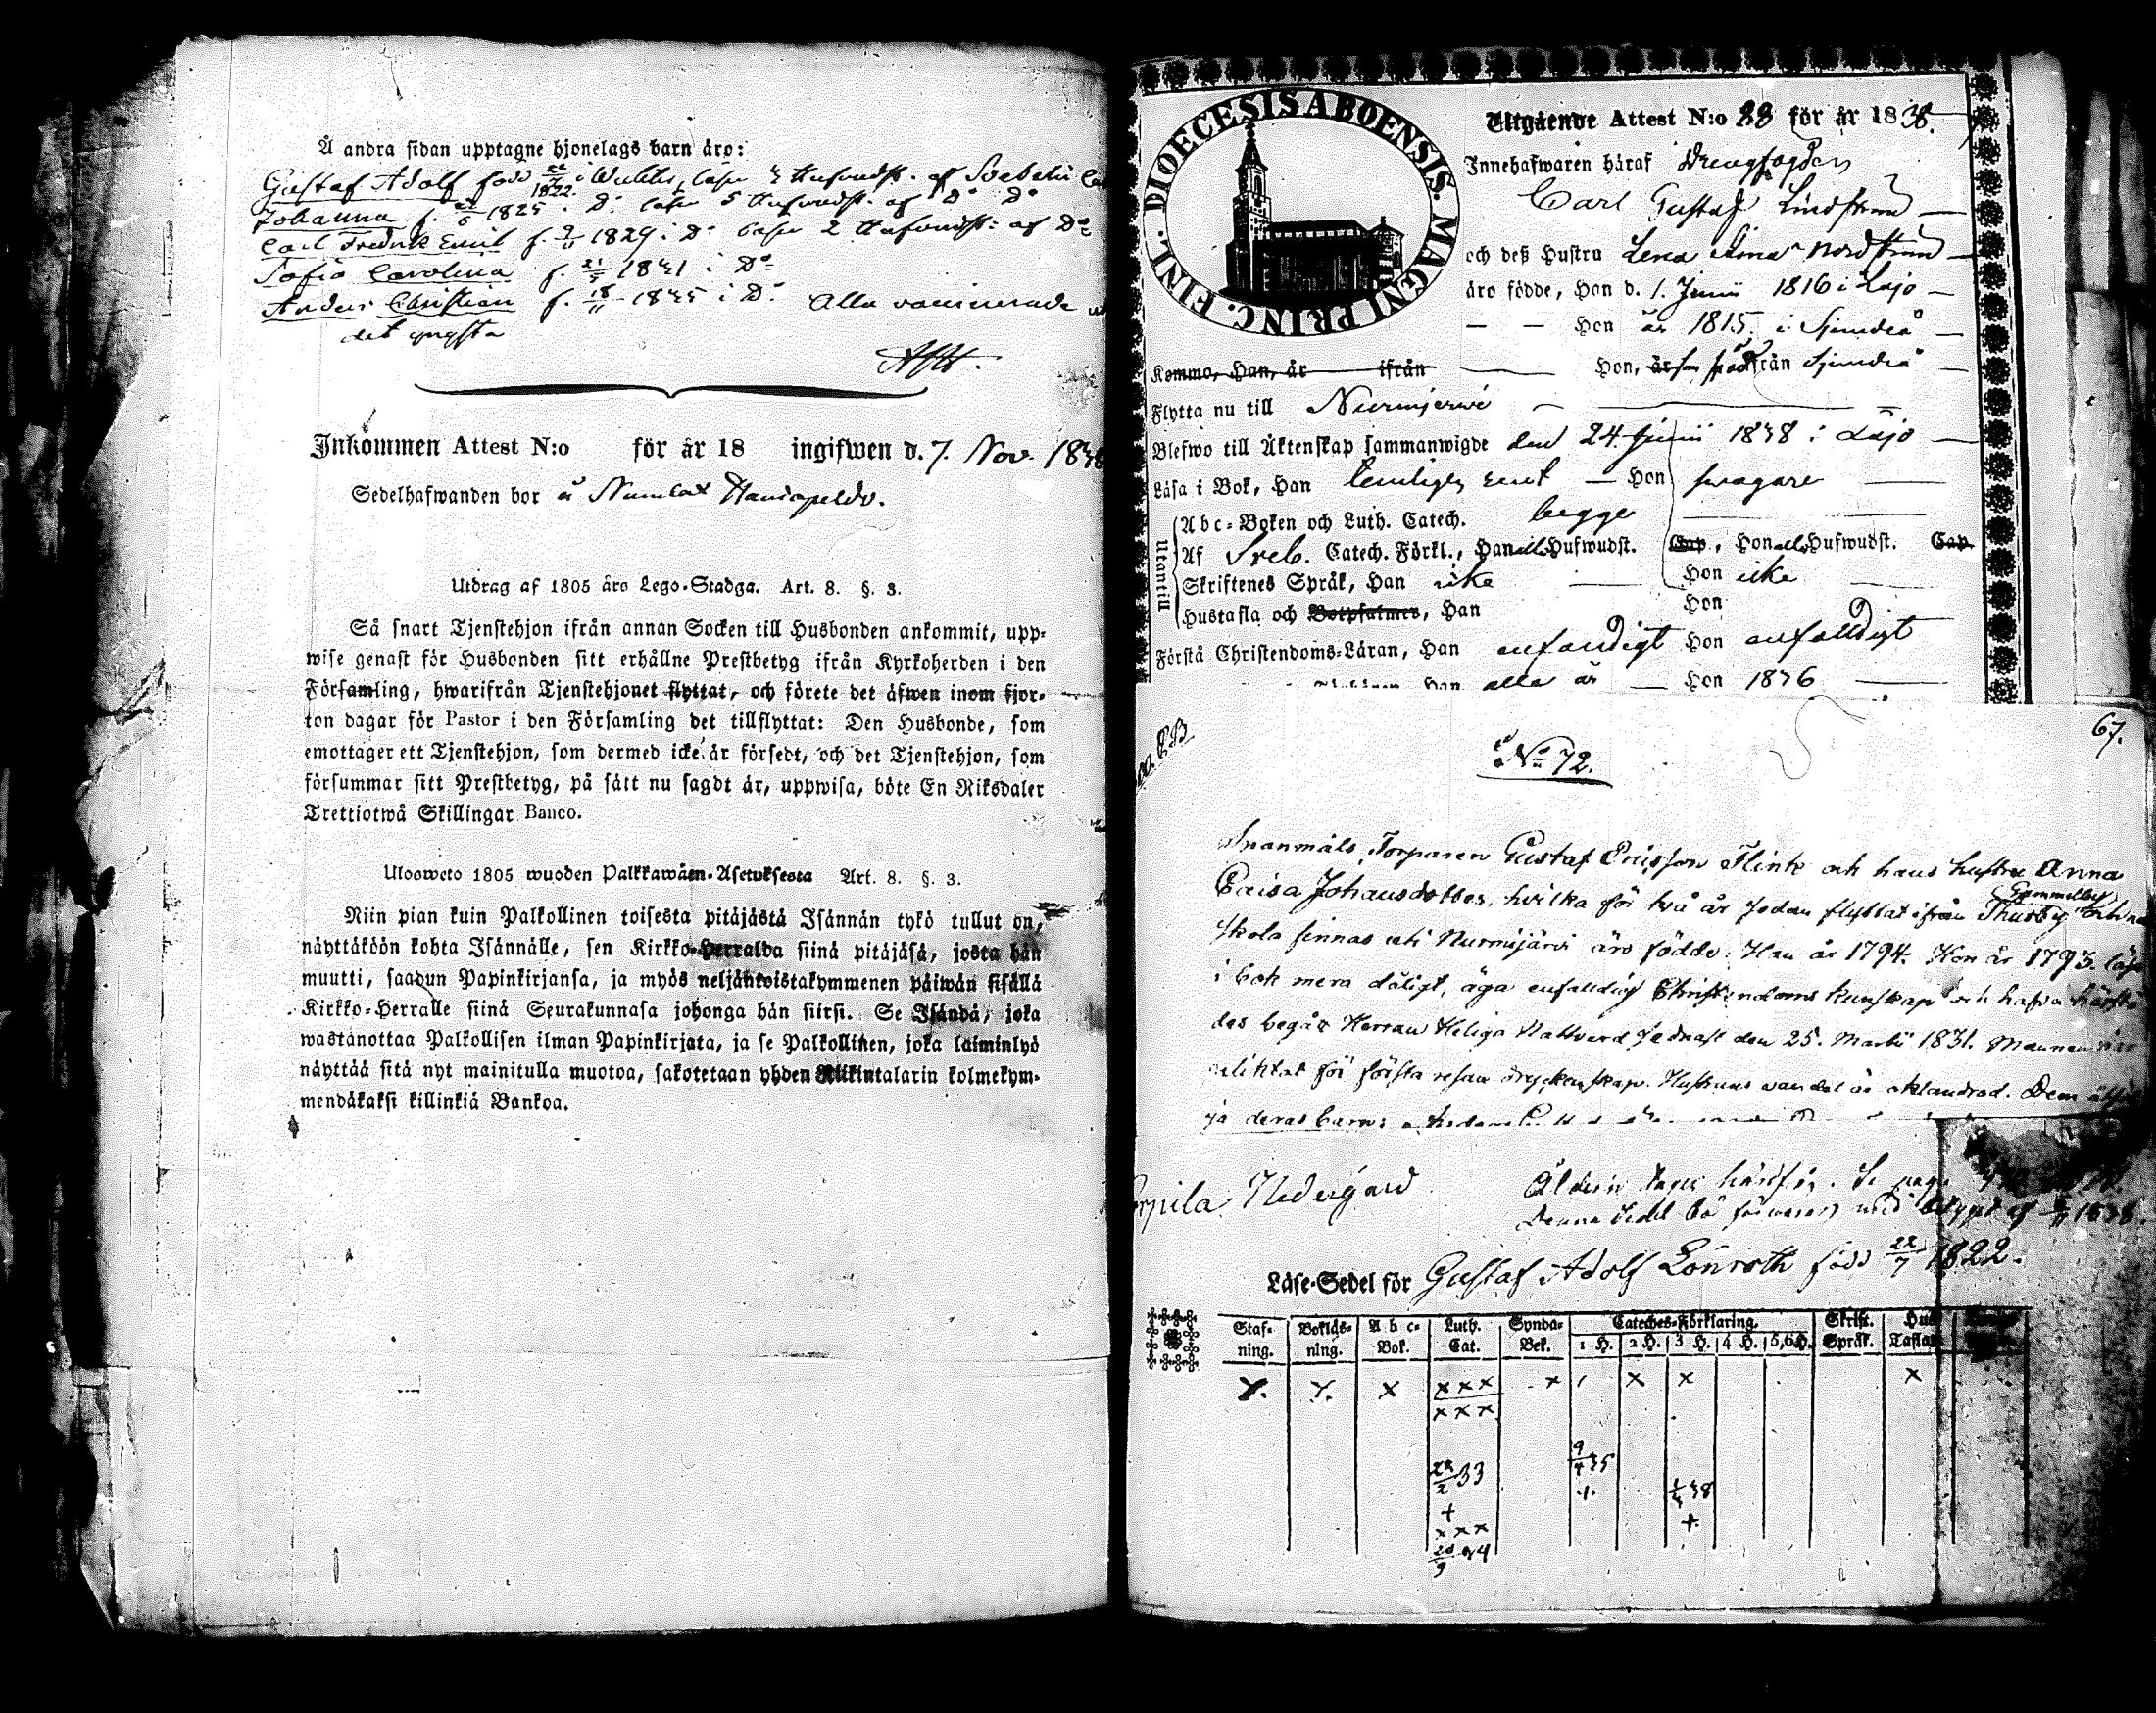 Å andra sidan upptagne hjonelags barn äro:
Gustaf Adolf född 22/7 1822. i Wichtis, läser 3 Hufvudst. af Svebelii
Johanna f. 1825 i Do läser 5 Hufvudst. af Do Do
Carl Fredrik Emil f. 1829 i Do läser 2 Hufvudst: af Do
Sofia Carolina f. 21/5 1831 i Do
Anders Christian f. 18/11 1835 i Do. Alla vaccinerade
det yngsta
Inkommen Attest N:o för år 18 ingifwen d. 7. Nov. 1838
Sedelhafwanden bor å Numlax
Utdrag af 1805 års Lego-Stadga. Art. 8. §. 3.
Så snart Tjenstehjon ifrån annan Socken till Husbonden ankommit, upp-
wise genast för Husbonden sitt erhållne Prestbetyg ifrån Kyrkoherden i den
Församling, hwarifrån Tjenstehjonet flyttat, och förete det äfwen inom fjor-
ton dagar för Pastor i den Församling det tillflyttat: Den Husbonde, som
emottager ett Tjenstehjon, som dermed icke är försedt, och det Tjenstehjon, som
försummar sitt Prestbetyg, på sätt nu sagdt är, uppwisa, böte En Riksdaler
Trettiotwå Skillingar Banco.
Uloosweto 1805 wuoden Palkkawäen-Asetuksesta Art. 8. §. 3.
Niin pian kuin Palkollinen toisesta pitäjästä Isännän tykö tullut on,
näyttäköön kohta Isännälle, sen Kirkko-Herralda siinä pitäjäsä, josta hän
muutti, saadun Papinkirjansa, ja myös neljäntoistakymmenen päiwän sisällä
Kirkko-Herralle siinä Seurakunnasa johonga hän siirsi. Se Isändä, joka
wastanottaa Palkollisen ilman Papinkirjata, ja se Palkollinen, joka laiminlyö
näyttää sitä nyt mainitulla muotoa, sakotetaan yhden Riikintalarin kolmekym-
mendäkaksi killinkiä Bankoa.
DIOECESIS ABOENSIS. MAGNI PRINC. FINL.
Utgående Attest N:o 23 för år 1838.
Innehafwaren häraf Drengfogden
Carl Gustaf Lindström
och deß Hustru Lena Stina Nordström
äro födde, Han d. 1. Junii 1816 i Lojo
Hon år 1815. i Sjundeå
Kommo, Han, år ifrån Hon, år från Sjundeå
Flytta nu till Nurmijerwi
Blefwo till Äktenskap sammanwigde den 24. Junii 1838 i Lojo
Läsa i Bok, Han temligen rent Hon swagare
Utantill
Abc-Boken och Luth. Catech. begge
Af Sveb. Catech. Förkl., Han alla Hufwudst. Cap, Hon alla Hufwudst. Cap.
Skriftenes Språk, Han icke Hon icke
Hustafla och Botpsalmer, Han Hon
Förstå Christendoms-Läran, Han enfaldigt Hon enfaldigt
Han alla år Hon 1836
67.
No 72.
Torparen Gustaf Ericsson Flink och hans hustru Anna
Caisa Johansdotter, hvilka för två år sedan flyttat ifrån Thusby Gammelby och nu
skola finnas uti Nurmijärvi äro födde: Han år 1794. Hon år 1793. läsa
i bok mera dåligt, äga enfaldig Christendoms kunskap och hafva
des begått Herrans Heliga Nattvard sednast den 25. Martii 1831. Mannen är
pliktat för första resan dryckenskap. Hustruns vandel är oklandrad. Dem
ja deras barn:
Nedergård
Åldern tages härifrån. Se
Denna Sedel bör förvaras med betyget af 1838.
Läse-Sedel för Gustaf Adolf Lönroth född 22/7 1822.
Staf-ning. Bokläs-ning. A b c-Bok. Luth. Cat. Synda-Bek. Cateches-Förklaring. Skrift. Språk. Hus Taflan
1 H. 2 H. 3 H. 4 H. 5,6 H.
x. x. x x x x x x x x
x x x
22/2 33 9/4 35
+
x x x